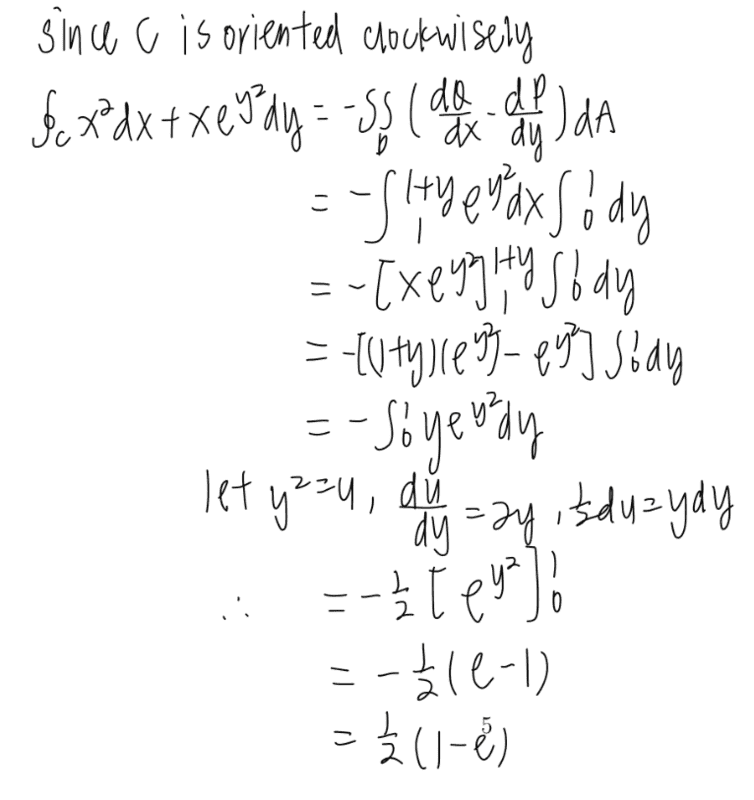 since C is oriented clockwisely
∮_C x²dx + xe^{y²}dy = -∫∫_D (dQ/dx - dP/dy) dA
= -∫_1^{1+y} e^{y²}dx ∫_0^1 dy
= -[xe^{y²}]_1^{1+y} ∫_0^1 dy
= -[(1+y)(e^{y²}) - e^{y²}] ∫_0^1 dy
= -∫_0^1 ye^{y²}dy
let y² = u, du/dy = 2y, ½du = ydy
∴ = -½[e^{y²}]_0^1
= -½(e-1)
= ½(1-e)
5